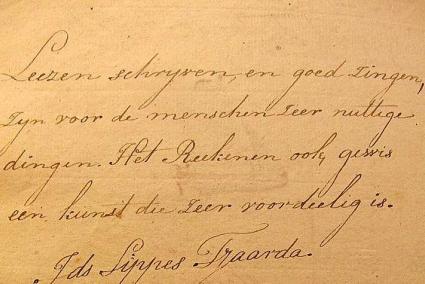 Leezen schryven, en goed Zingen,
Zyn voor de menschen Zeer nuttige
dingen. Het Reekenen ook, gewis
een kunst die Zeer voordeelig is.
Ids Lippes Tjaarda.